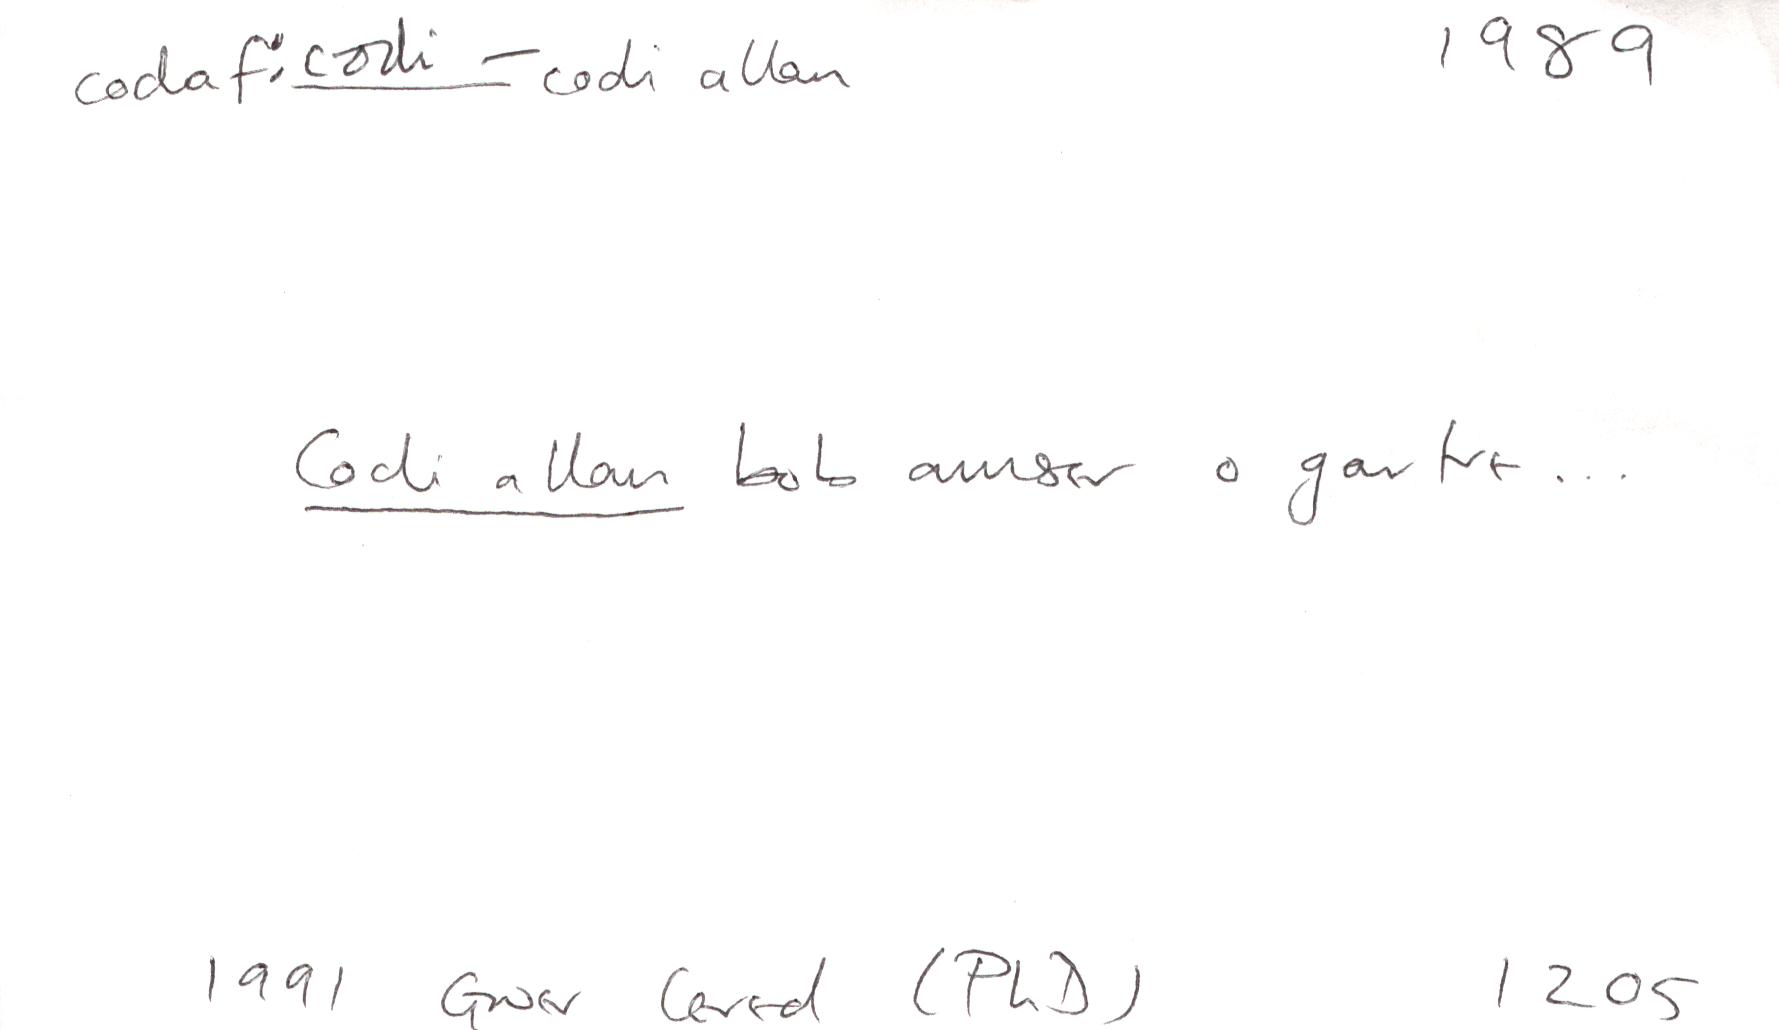 codaf: codi – codi allan 1989
Codi allan bob amser o gartre...
1991 Gwer Cered (PhD) 1205